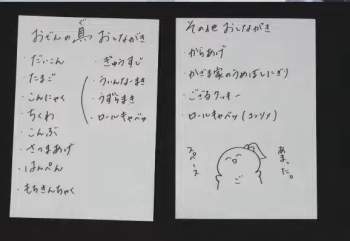 おでんの具 おしながき
・だいこん
・たまご
・こんにゃく
・ちくわ
・こんぶ
・さつまあげ
・はんぺん
・もちきんちゃく
・ぎゅうすじ
・ういんなーまき
・うずらまき
・ロールキャベツ
その他 おしながき
・からあげ
・かざま家のうめぼしにぎり
・ござるクッキー
・ロールキャベツ(コンソメ)
あまった。
スペース
ご